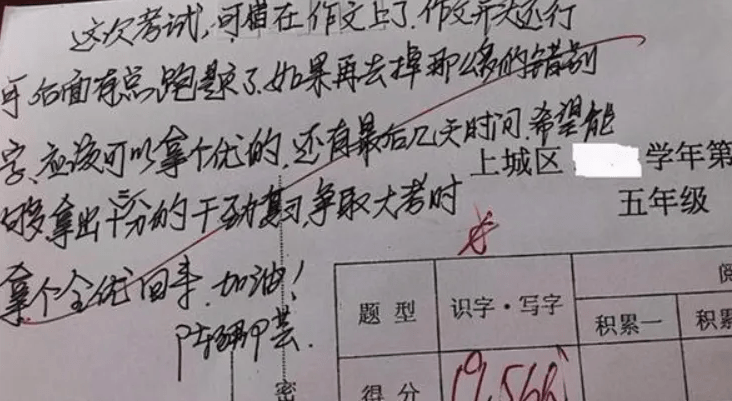 这次考试,可惜在作文上了.作文开头还行
可后面有点跑题了.如果再去掉那么多的错别
字、应该可以拿个优的.还有最后几天时间.希望能
够拿出十二分的干劲复习,争取大考时
拿个全优回来.加油!
上城区 学年第
五年级
题 型 识字·写字 阅
积累一 积累
得 分 19.5
密